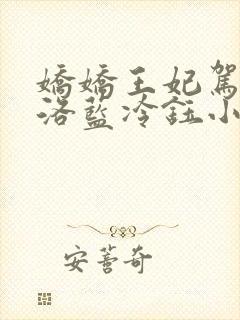 嬌嬌王妃駕
洛藍冷鈺小
安薏奇